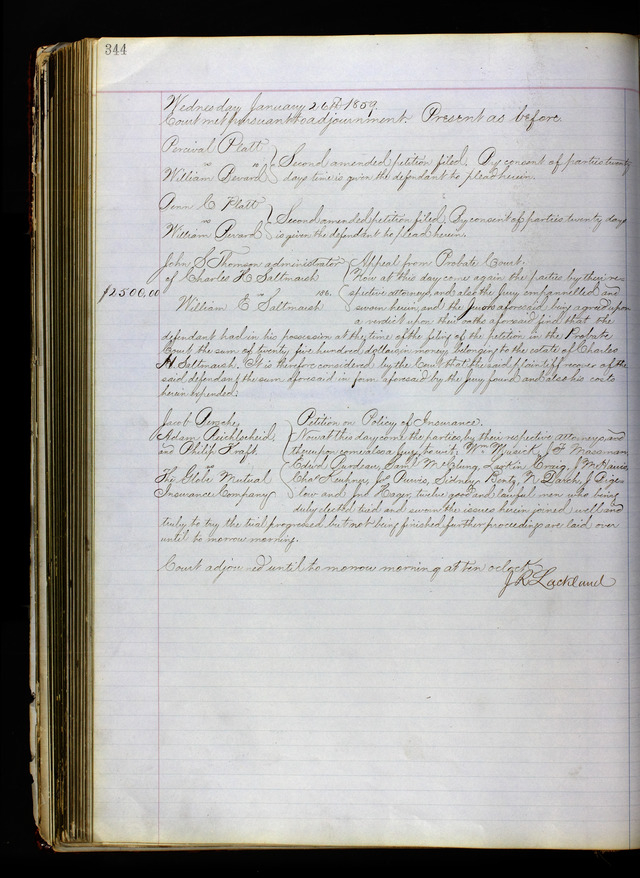 344
Wednesday January 26th 1859.
Court met pursuant to adjournment. Present as before.
Percival Platt
vs
William Bevard
Second amended petition filed. By consent of parties twenty
days time is given the defendant to plead herein.
Ann E Platt
vs
William Bevard
Second amended petition filed. By consent of parties twenty days
is given the defendant to plead herein.
John S Thomson administrator
of Charles H Saltmaish
vs
William E Saltmaish
$2500,00
Appeal from Probate Court.
Now at this day come again the parties by their re-
spective attorneys, and also the Jury empannelled and
sworn herein, and the Jurors aforesaid being agreed upon
a verdict upon their oaths aforesaid find that the
defendant had in his possession at the time of the filing of the petition in the Probate
Court the sum of twenty five hundred dollars in money belonging to the estate of Charles
H Saltmaish. It is therefore considered by the Court that the said plaintiff recover of the
said defendant the sum aforesaid in form aforesaid by the Jury found and also his costs
herein expended.
Jacob
Adam
and Philip Kraft
vs
The Globe Mutual
Insurance Company
Petition on Policy of Insurance.
Now at this day come the parties by their respective attorneys and
thereupon comes also a Jury, to wit, Wm
Larkin Craig,
Sidney N
low and Jno Hager, twelve good and lawful men who being
duly elected tried and sworn the issues herein joined well and
truly to try the trial progressed but not being finished further proceedings are laid over
until to morrow morning.
Court adjourned until to morrow morning at ten oclock
J R Lackland